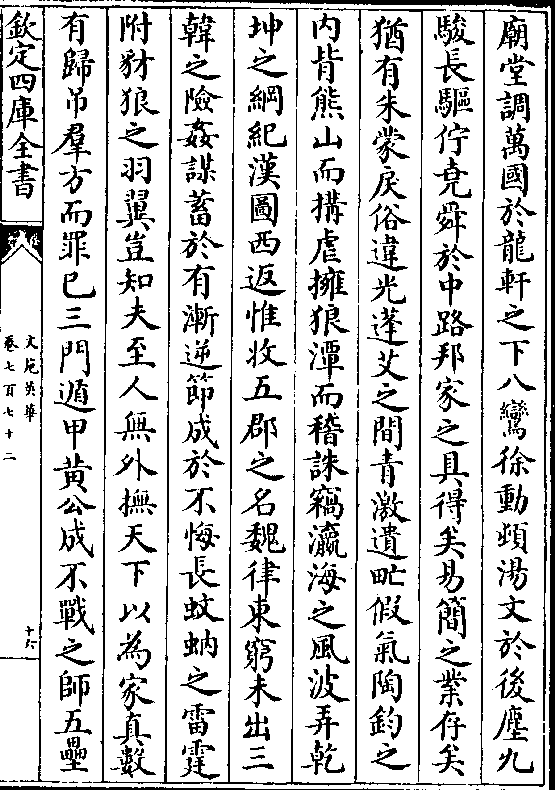 廟堂調萬國於龍軒之下八鸞徐動頫湯文於後塵九
駿長驅佇堯舜於中路邦家之具得矣易簡之業存矣
猶有朱蒙戾俗違光蓬艾之間青激遺甿假氣陶鈞之
内背熊山而搆虐擁狼潭而稽誅竊瀛海之風波弄乾
坤之綱紀漢圖西返惟收五郡之名魏律東窮未出三
韓之險姦謀蓄於有漸逆節成於不悔長蚊蚋之雷霆
附豺狼之羽翼豈知夫至人無外撫天下以為家真數
有歸吊羣方而罪已三門遁甲黄公成不戰之師五壘
欽定四庫全書
文苑英華
卷七百七十二
十六